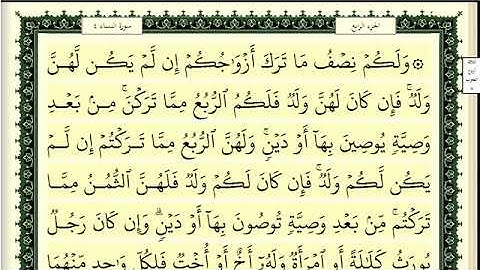 سورة النساء ٤
الجزء الرابع
۞ وَلَكُمْ نِصْفُ مَا تَرَكَ أَزْوَٰجُكُمْ إِن لَّمْ يَكُن لَّهُنَّ
وَلَدٌ ۚ فَإِن كَانَ لَهُنَّ وَلَدٌ فَلَكُمُ ٱلرُّبُعُ مِمَّا تَرَكْنَ ۚ مِنۢ بَعْدِ
وَصِيَّةٍ يُوصِينَ بِهَآ أَوْ دَيْنٍ ۚ وَلَهُنَّ ٱلرُّبُعُ مِمَّا تَرَكْتُمْ إِن لَّمْ
يَكُن لَّكُمْ وَلَدٌ ۚ فَإِن كَانَ لَكُمْ وَلَدٌ فَلَهُنَّ ٱلثُّمُنُ مِمَّا
تَرَكْتُم ۚ مِّنۢ بَعْدِ وَصِيَّةٍ تُوصُونَ بِهَآ أَوْ دَيْنٍ ۗ وَإِن كَانَ رَجُلٌ
يُورَثُ كَلَٰلَةً أَوِ ٱمْرَأَةٌ وَلَهُۥٓ أَخٌ أَوْ أُخْتٌ فَلِكُلِّ وَٰحِدٍ مِّنْهُمَا